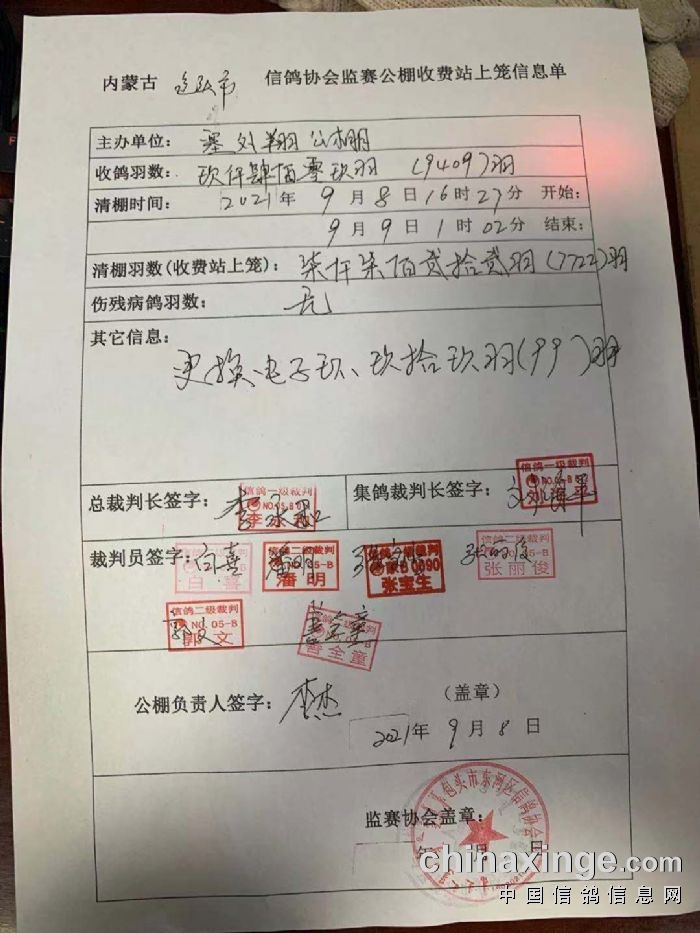 内蒙古 包头市 信鸽协会监赛公棚收费站上笼信息单
主办单位: 塞外翔羽公棚
收鸽羽数: 玖仟肆佰零玖羽 (9409)羽
清棚时间: 2021年 9月 8日 16时 27分 开始:
9月 9日 1时 02分 结束:
清棚羽数(收费站上笼): 柒仟柒佰贰拾贰羽(7722)羽
伤残病鸽羽数: 无
其它信息:
更换电子环、玖拾玖羽(99)羽
总裁判长签字:
信鸽一级裁判
NO.05-B
集鸽裁判长签字:
信鸽一级裁判
NO.05-B
裁判员签字: 白喜 潘明 张丽俊
白喜
信鸽二级裁判
NO.05-B
潘明
裁判
0090
张宝生
信鸽二级裁判
05-B
张丽俊
信鸽二级裁判
NO.05-B
郭文
裁判
全童
公棚负责人签字: 李杰 (盖章)
2021年 9月 8日
监赛协会盖章:
包头市东河区信鸽协会
年 月 日
chinaxinge.com
中国信鸽信息网